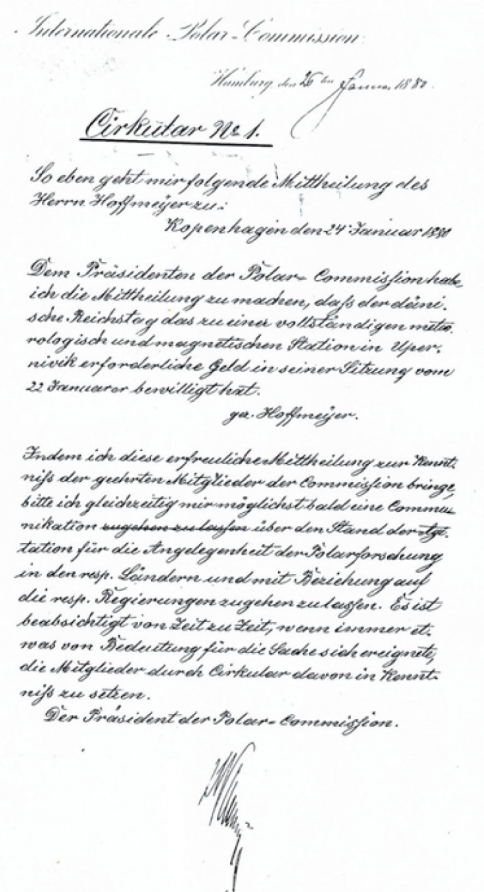 Internationale Polar-Commission
Hamburg den 26ten Januar 1880.
Cirkular No 1.
So eben geht mir folgende Mittheilung des
Herrn Hoffmeyer zu:
Kopenhagen den 24 Januar 1880
Dem Präsidenten der Polar-Commission habe
ich die Mittheilung zu machen, daß der däni-
sche Reichstag das zu einer vollständigen meteo-
rologisch und magnetischen Station in Uper-
nivik erforderliche Geld in seiner Sitzung vom
22 Januar er bewilligt hat.
gz. Hoffmeyer.
Indem ich diese erfreuliche Mittheilung zur Kennt-
niß der geehrten Mitglieder der Commission bringe,
bitte ich gleichzeitig mir möglichst bald eine Commu-
nikation zugehen zu lassen über den Stand der Agi-
tation für die Angelegenheit der Polarforschung
in den resp. Ländern und mit Beziehung auf
die resp. Regierungen zugehen zu lassen. Es ist
beabsichtigt von Zeit zu Zeit, wenn immer et-
was von Bedeutung für die Sache sich ereignete,
die Mitglieder durch Cirkular davon in Kennt-
niß zu setzen.
Der Präsident der Polar-Commission.